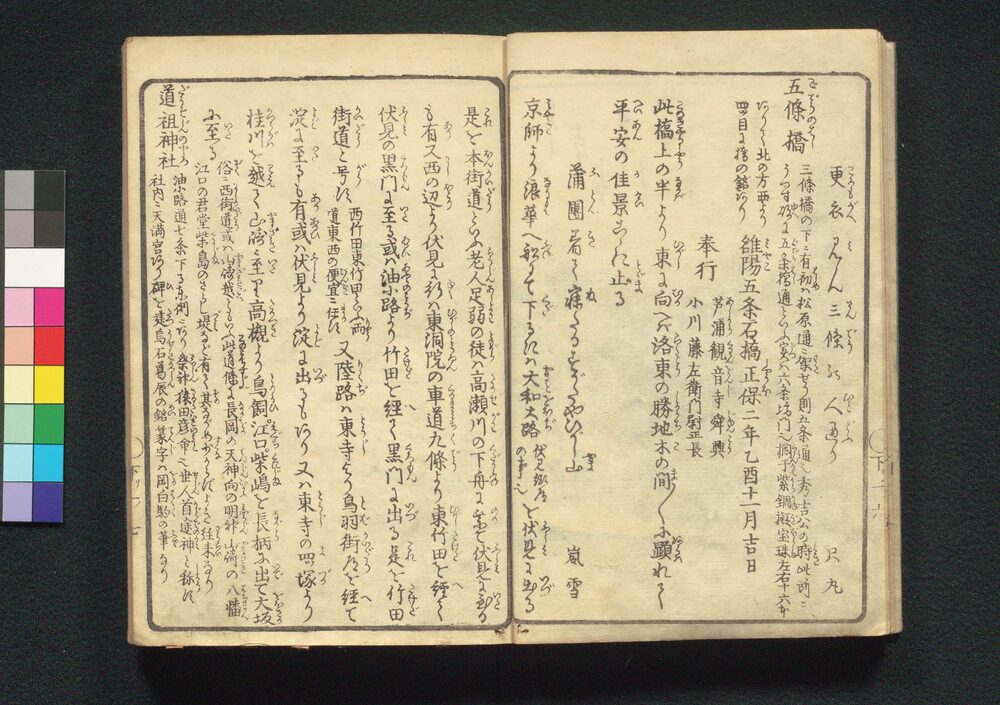 更衣 三條 人通り 尺丸
五條橋 三條橋の下に有初ハ松原通に架せり則五条通也秀吉公の時此所に
うつす故に五条橋通といふ実ハ六条坊門也橋于紫銅擬宝珠左右十六本
ありて北の方西より
四目に橋の銘あり
雒陽五条石橋正保二年乙酉十一月吉日
奉行 芦浦観音寺舜興
小川藤左衛門尉正長
此橋上の半より東に向へバ洛東の勝地木の間〳〵に顕れて
平安の佳景こゝに止る
蒲團着て寐たるすがたやひがし山 嵐雪
京師より浪華へ船にて下るにハ大和大路 伏見街道の事也 を伏見に出る
是を本街道といふ老人足弱の徒ハ高瀬川の下舟に乗て伏見に出る
も有又西の辺より伏見に行ハ東洞院の車道九條より東竹田を経て
伏見の黒門に至る或ハ油小路より竹田を経て黒門に出る是を竹田
街道と号す 西竹田東竹田といふ両道東西の便宜に任す 又陸路ハ東寺より鳥羽街道を経て
淀に至るも有或ハ伏見より淀に出るもあり又ハ東寺の四塚より
桂川を越て山崎に至り高槻より鳥飼江口柴嶋を長柄に出て大坂
に至る 俗に西街道或ハ山崎越ともいふ此道條に長岡の天神向の明神山崎の八幡
江口の君堂柴島のさらし堤など有て其ながめおほし
道祖神社 油小路通七条下る東側にあり祭神猿田彦命也世人首途神と称す
社内に天満宮あり碑を建烏石葛辰の銘篆字ハ岡白駒の筆なり